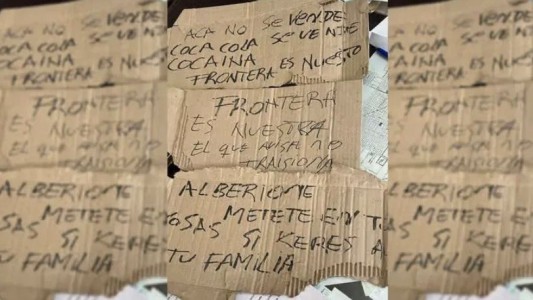 ACA NO SE VENDE
COCA COLA SE VENDE
COCAINA ES NUESTO
FRONTERA
FRONTERA
ES NUESTRA
EL QUE AVISA NO
TRAISIONA
ALBERIONE
METETE EN T
OSAS SI KERES A
TU FAMILIA